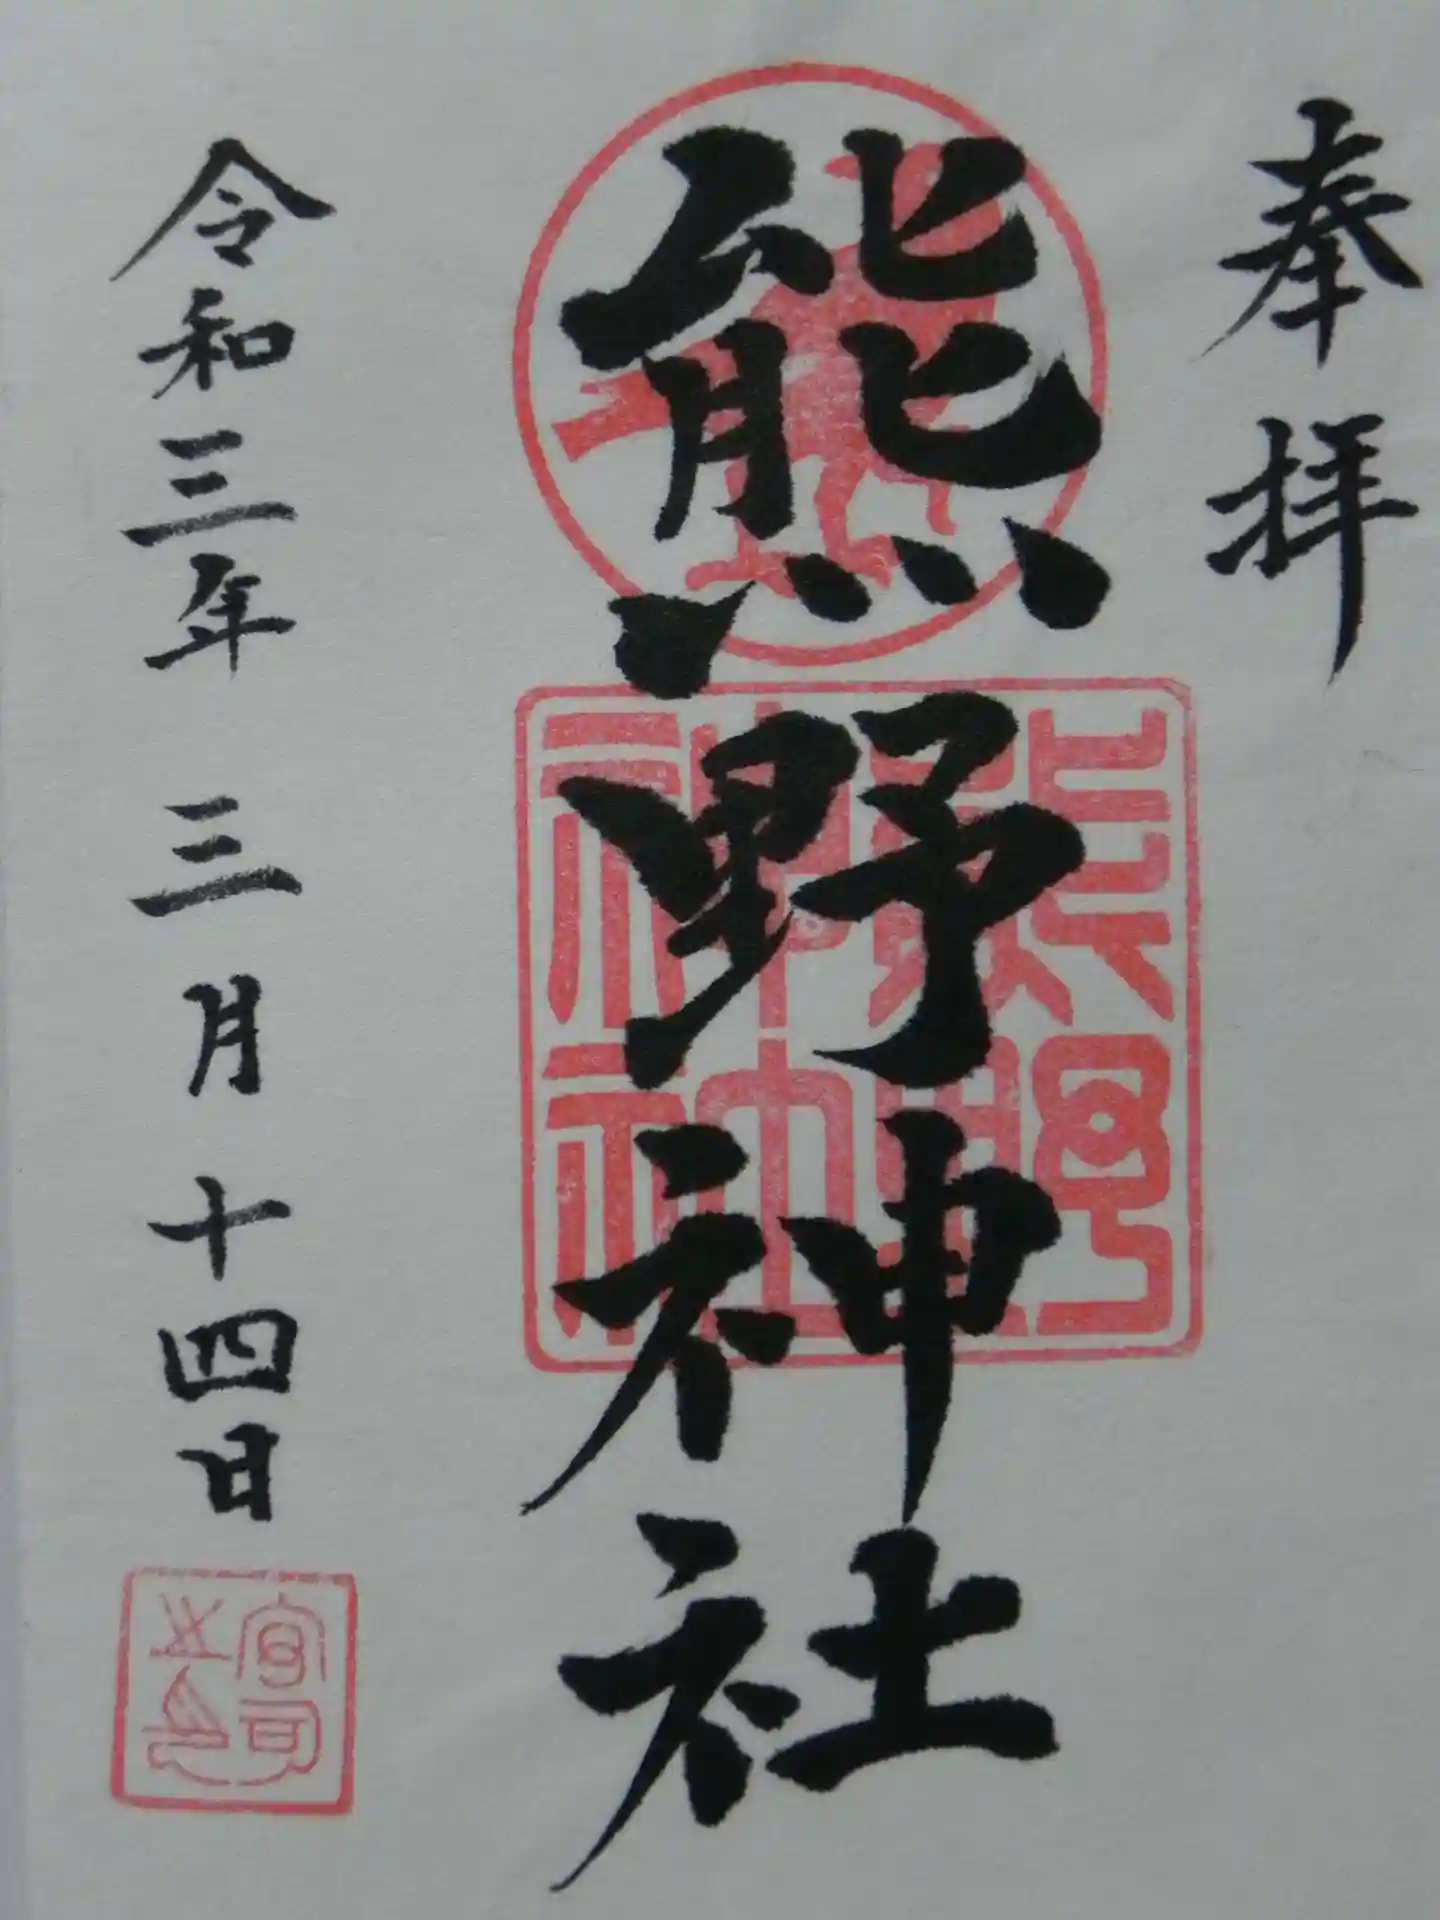 奉拝
熊野神社
熊野
神社
令和三年 三月十四日
宮司
之印